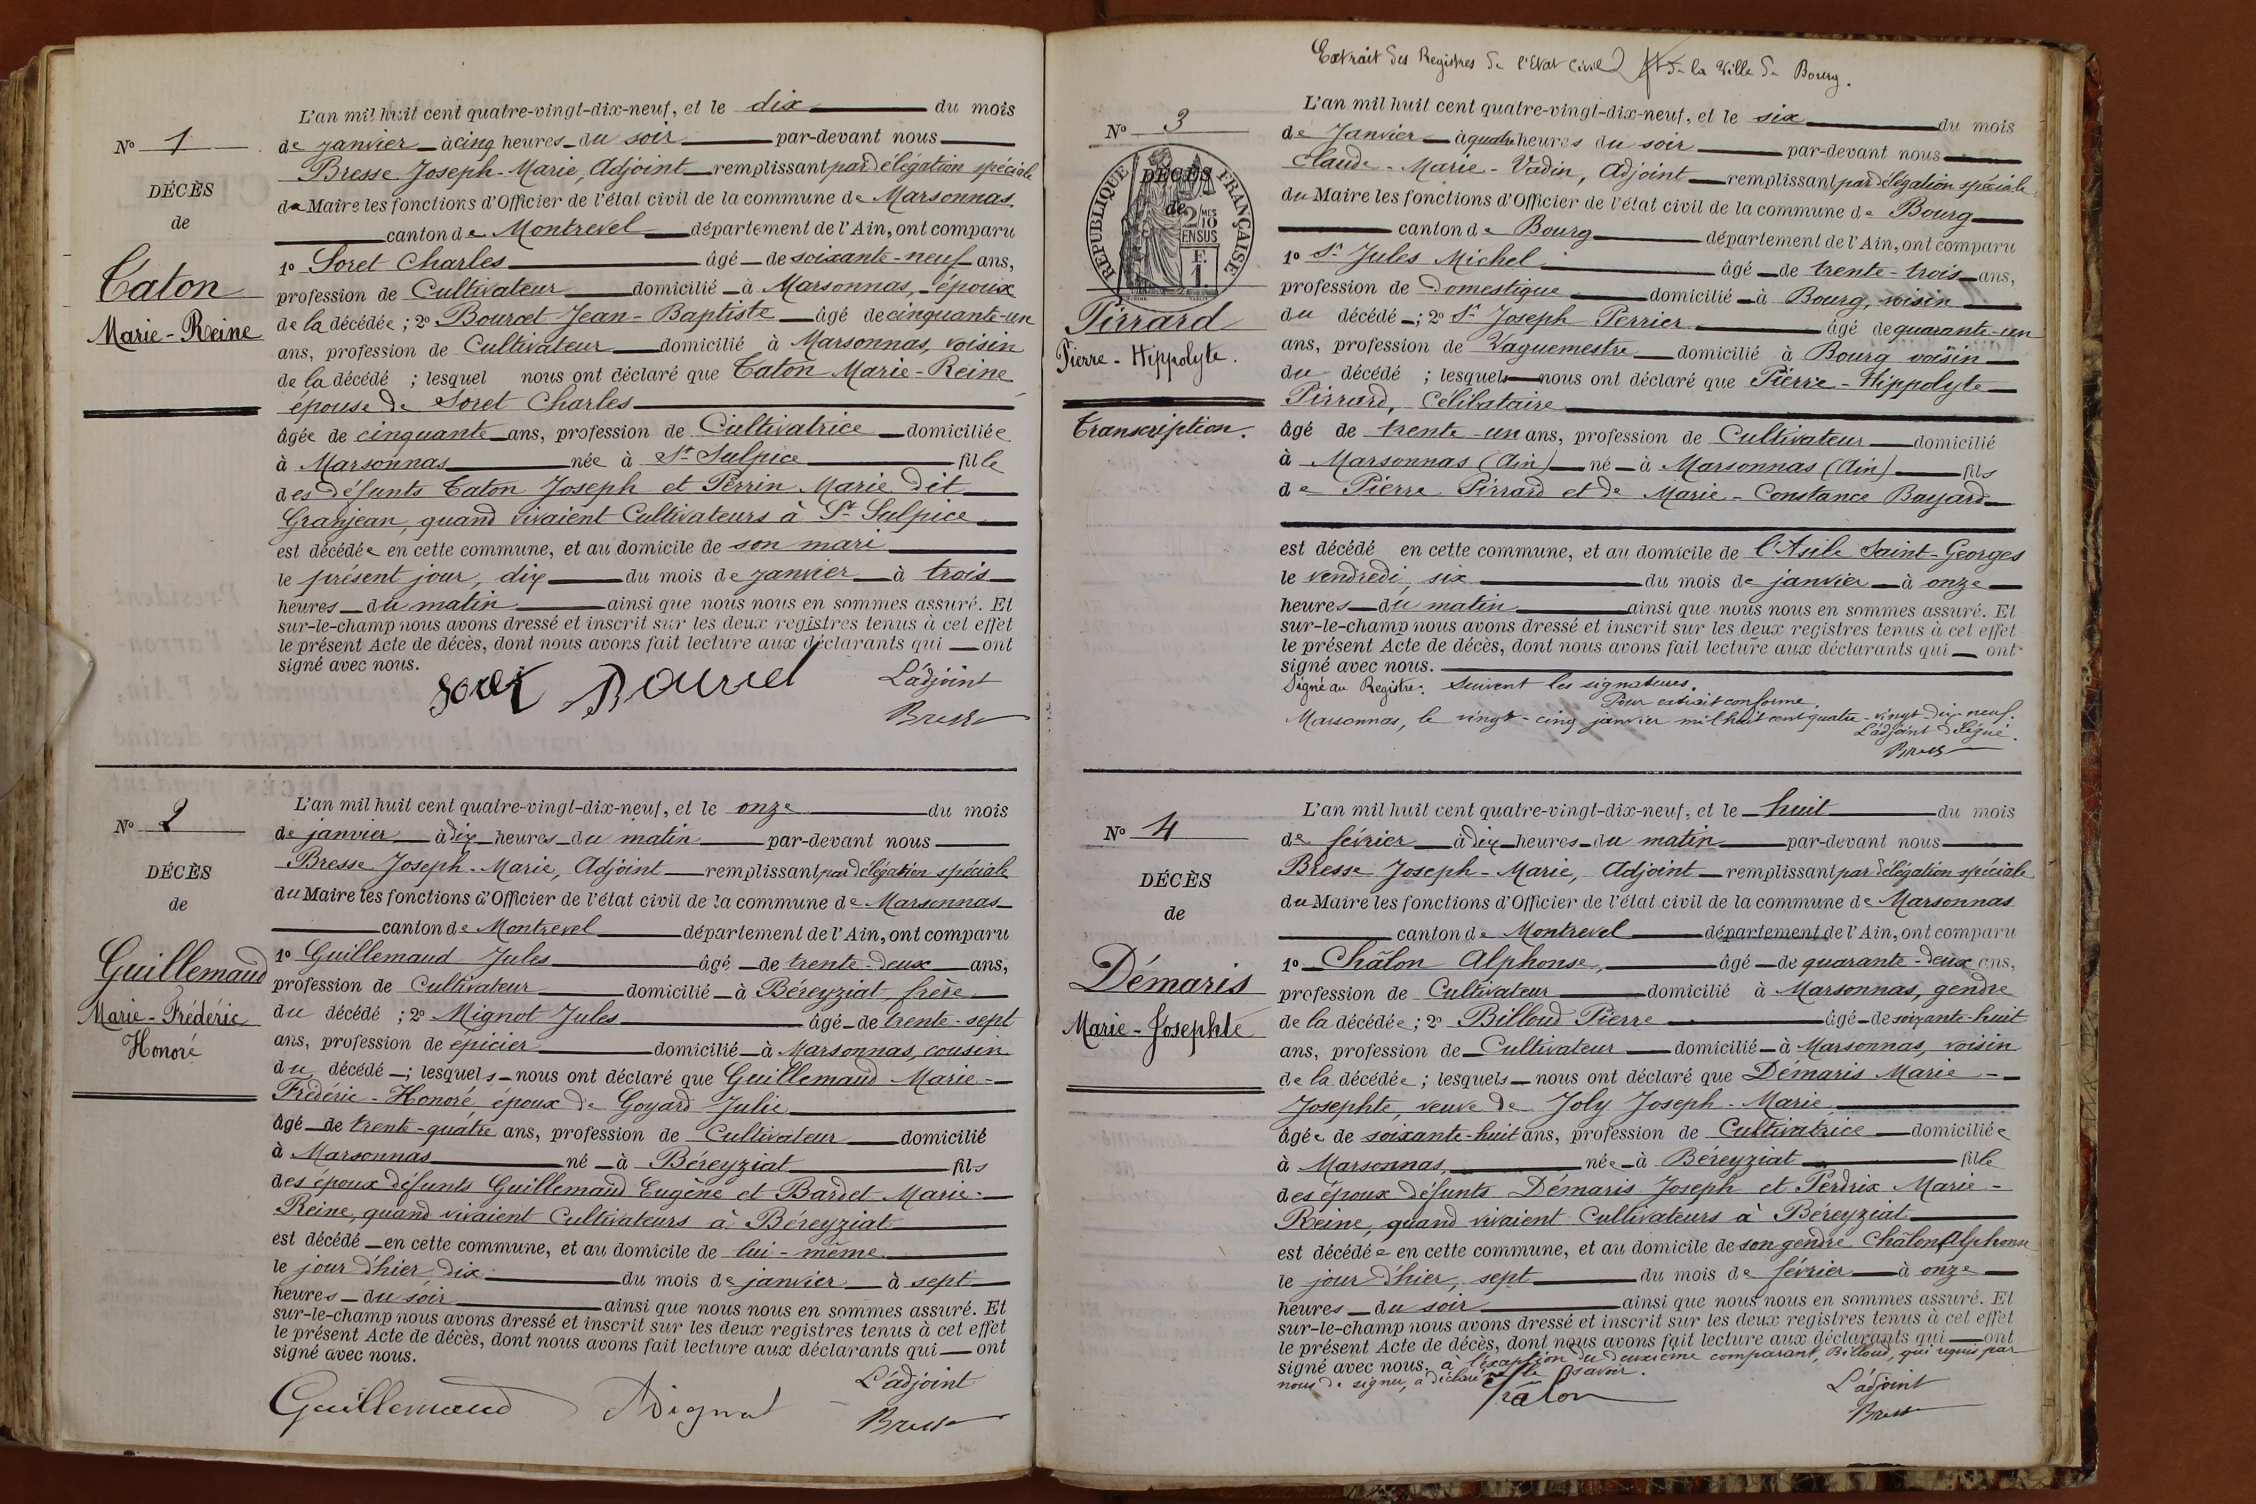 L'an mil huit cent quatre-vingt-dix-neuf, et le dix du mois
Nº 1
de janvier à cinq heures du soir par-devant nous
Bresse Joseph-Marie, Adjoint remplissant par délégation spéciale
DÉCÈS
du Maire les fonctions d'Officier de l'état civil de la commune de Marsonnas
de
canton de Montrevel département de l'Ain, ont comparu
1º Soret Charles âgé de soixante-neuf ans,
Caton
profession de Cultivateur domicilié à Marsonnas, époux
de la décédée ; 2º Bourcet Jean-Baptiste âgé de cinquante-un
Marie-Reine
ans, profession de Cultivateur domicilié à Marsonnas, voisin
de la décédé ; lesquel nous ont déclaré que Caton Marie-Reine
épouse de Soret Charles
âgée de cinquante ans, profession de Cultivatrice domiciliée
à Marsonnas née à St Sulpice fille
des défunts Caton Joseph et Perrin Marie dit
Granjean, quand vivaient Cultivateurs à St Sulpice
est décédée en cette commune, et au domicile de son mari
le présent jour, dix du mois de janvier à trois
heures du matin ainsi que nous nous en sommes assuré. Et
sur-le-champ nous avons dressé et inscrit sur les deux registres tenus à cet effet
le présent Acte de décès, dont nous avons fait lecture aux déclarants qui ont
signé avec nous.
L'adjoint
Bresse
L'an mil huit cent quatre-vingt-dix-neuf, et le onze du mois
Nº 2
de janvier à dix heures du matin par-devant nous
Bresse Joseph-Marie, Adjoint remplissant par délégation spéciale
DÉCÈS
du Maire les fonctions d'Officier de l'état civil de la commune de Marsonnas
de
canton de Montrevel département de l'Ain, ont comparu
1º Guillemaud Jules âgé de trente-deux ans,
Guillemaud
profession de Cultivateur domicilié à Béreyziat, frère
du décédé ; 2º Mignot Jules âgé de trente-sept
Marie-Frédéric
ans, profession de épicier domicilié à Marsonnas, cousin
Honoré
du décédé ; lesquels nous ont déclaré que Guillemaud Marie-
Frédéric-Honoré époux de Goyard Julie
âgé de trente-quatre ans, profession de Cultivateur domicilié
à Marsonnas né à Béreyziat fils
des époux défunts Guillemaud Eugène et Bardet Marie-
Reine, quand vivaient Cultivateurs à Béreyziat
est décédé en cette commune, et au domicile de lui-même
le jour d'hier dix du mois de janvier à sept
heures du soir ainsi que nous nous en sommes assuré. Et
sur-le-champ nous avons dressé et inscrit sur les deux registres tenus à cet effet
le présent Acte de décès, dont nous avons fait lecture aux déclarants qui ont
signé avec nous.
L'adjoint
Guillemaud Mignot Bresse
Extrait des Registres de l'Etat Civil de la Ville de Bourg.
L'an mil huit cent quatre-vingt-dix-neuf, et le six du mois
Nº 3
de Janvier à quatre heures du soir par-devant nous
Claude-Marie-Vadin, Adjoint remplissant par délégation spéciale
RÉPUBLIQUE FRANÇAISE
DÉCÈS
de
2 MES 10
EN SUS
F.
1
du Maire les fonctions d'Officier de l'état civil de la commune de Bourg
canton de Bourg département de l'Ain, ont comparu
1º Sr Jules Michel âgé de trente-trois ans,
profession de Domestique domicilié à Bourg, voisin
Pirrard
du décédé ; 2º Sr Joseph Perrier âgé de quarante-un
Pierre-Hippolyte.
ans, profession de Vaguemestre domicilié à Bourg voisin
du décédé ; lesquels nous ont déclaré que Pierre-Hippolyte
Pirrard, Célibataire
Transcription.
âgé de trente-un ans, profession de Cultivateur domicilié
à Marsonnas (Ain) né à Marsonnas (Ain) fils
de Pierre Pirrard et de Marie-Constance Bayard
est décédé en cette commune, et au domicile de l'Asile Saint-Georges
le vendredi six du mois de janvier à onze
heures du matin ainsi que nous nous en sommes assuré. Et
sur-le-champ nous avons dressé et inscrit sur les deux registres tenus à cet effet
le présent Acte de décès, dont nous avons fait lecture aux déclarants qui ont
signé avec nous.
Signé au Registre: Suivent les signatures.
Pour extrait conforme.
Marsonnas, le vingt-cinq janvier mil huit cent quatre-vingt dix neuf.
L'adjoint délégué.
Bresse
L'an mil huit cent quatre-vingt-dix-neuf, et le huit du mois
Nº 4
de février à dix heures du matin par-devant nous
Bresse Joseph-Marie, Adjoint remplissant par délégation spéciale
DÉCÈS
du Maire les fonctions d'Officier de l'état civil de la commune de Marsonnas
de
canton de Montrevel département de l'Ain, ont comparu
1º Châlon Alphonse, âgé de quarante-deux ans,
Démaris
profession de Cultivateur domicilié à Marsonnas, gendre
de la décédée ; 2º Billoud Pierre âgé de soixante-huit
Marie-Josephte
ans, profession de Cultivateur domicilié à Marsonnas, voisin
de la décédée ; lesquels nous ont déclaré que Démaris Marie-
Josephte, veuve de Joly Joseph-Marie
âgée de soixante-huit ans, profession de Cultivatrice domiciliée
à Marsonnas, née à Béreyziat fille
des époux défunts Démaris Joseph et Perdrix Marie-
Reine, quand vivaient Cultivateurs à Béreyziat
est décédée en cette commune, et au domicile de son gendre Châlon Alphonse
le jour d'hier, sept du mois de février à onze
heures du soir ainsi que nous nous en sommes assuré. Et
sur-le-champ nous avons dressé et inscrit sur les deux registres tenus à cet effet
le présent Acte de décès, dont nous avons fait lecture aux déclarants qui ont
signé avec nous. à l'exception du deuxième comparant, Billoud, qui requis par
nous de signer, a déclaré ne le savoir.
L'adjoint
Châlon Bresse